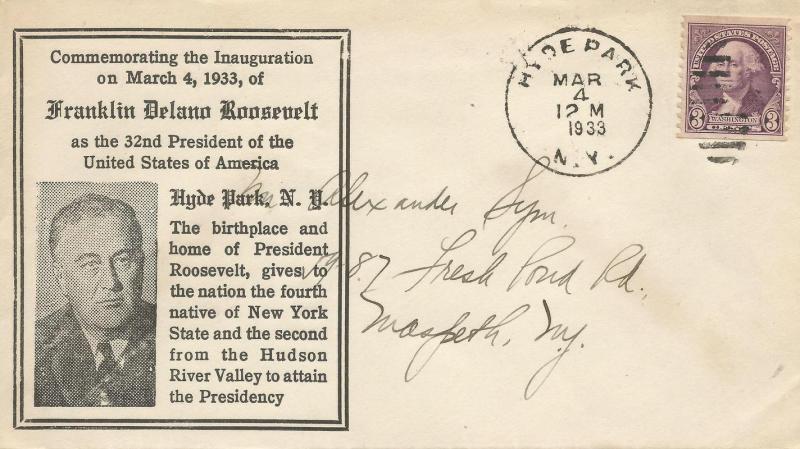 Commemorating the Inauguration
on March 4, 1933, of
Franklin Delano Roosevelt
as the 32nd President of the
United States of America
Hyde Park, N. Y.
The birthplace and
home of President
Roosevelt, gives to
the nation the fourth
native of New York
State and the second
from the Hudson
River Valley to attain
the Presidency
HYDE PARK
MAR
4
12 M
1933
N.Y.
UNITED STATES POSTAGE
WASHINGTON
3 CENTS 3
Alexander Sym
Fresh Pond Rd.
Maspeth, N.Y.